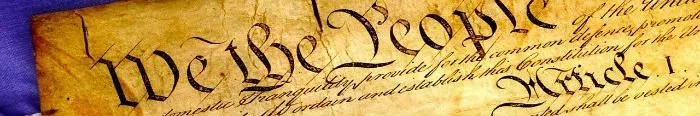 We the People
of the Unit
domestic Tranquility, provide for the common defence, promo
ordain and establish this Constitution for the Un
Article. I.
shall be vested in